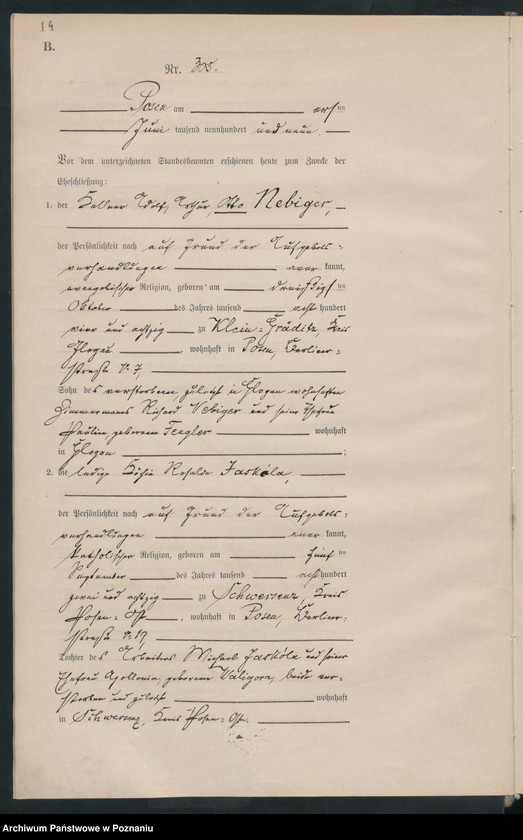 14
B.
Nr. 305.
Posen am ersten
Juni tausend neunhundert und neun.
Vor dem unterzeichneten Standesbeamten erschienen heute zum Zwecke der
Eheschließung:
1. der Kellner Adolf, Arthur, Otto Nebiger,
der Persönlichkeit nach auf Grund der Aufgebots-
verhandlungen aner kannt,
evangelischer Religion, geboren am dreißigsten
Oktober des Jahres tausend acht hundert
vier und achtzig zu Klein-Gräditz, Kreis
Glogau, wohnhaft in Posen, Berliner-
straße N: 7,
Sohn des verstorbenen, zuletzt in Glogau wohnhaften
Zimmermanns Richard Nebiger und seiner Ehefrau
Pauline, geborenen Fengler wohnhaft
in Glogau;
2. die ledige Köchin Rosalie Jaskóla,
der Persönlichkeit nach auf Grund der Aufgebots-
verhandlungen aner kannt,
katholischer Religion, geboren am fünf ten
September des Jahres tausend acht hundert
zwei und achtzig zu Schwersenz, Kreis
Posen-Ost, wohnhaft in Posen, Berliner-
straße N: 19
Tochter des Arbeiters Michael Jaskóla und seiner
Ehefrau Apollonia geborenen Waligora, beide ver-
storben und zuletzt wohnhaft
in Schwersenz, Kreis Posen-Ost.
Archiwum Państwowe w Poznaniu